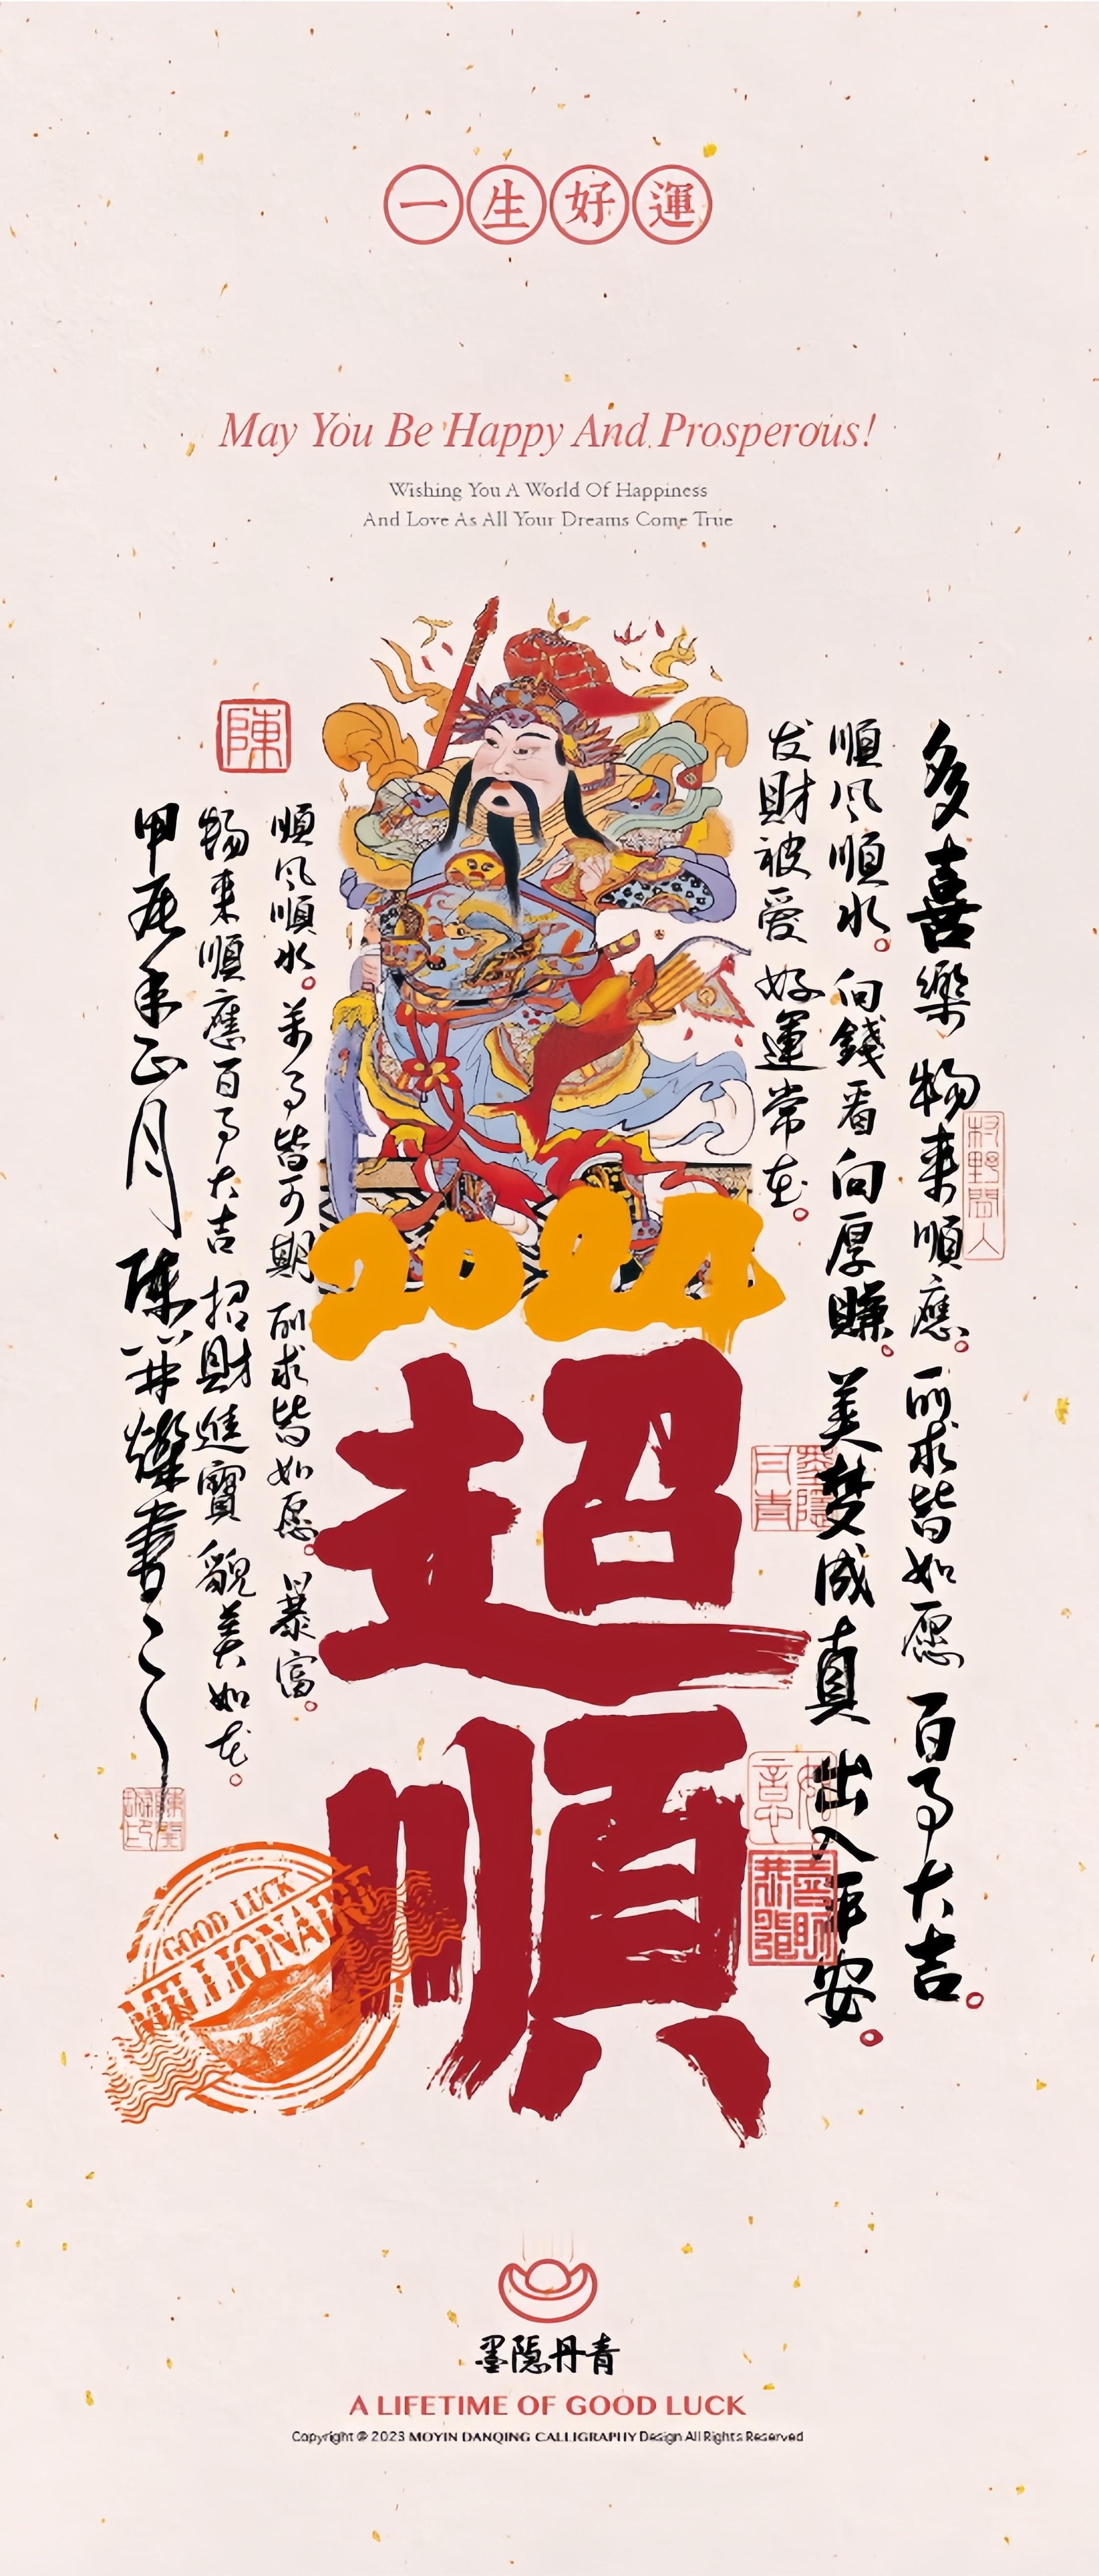 一生好運
May You Be Happy And Prosperous!
Wishing You A World Of Happiness
And Love As All Your Dreams Come True
多喜樂 物来順應。所求皆如愿 百事大吉。
順风順水。向錢看向厚賺。美梦成真 出入平安。
发財被爱 好運常在。
2024
超順
順风順水。萬事皆可期 所求皆如愿。暴富。
物来順應百事大吉 招財進寶 貌美如花。
甲辰年正月 陳 燦書
陳
GOOD LUCK
MILLIONAIRE
墨隐丹青
A LIFETIME OF GOOD LUCK
Copyright © 2023 MOYIN DANQING CALLIGRAPHY Design All Rights Reserved